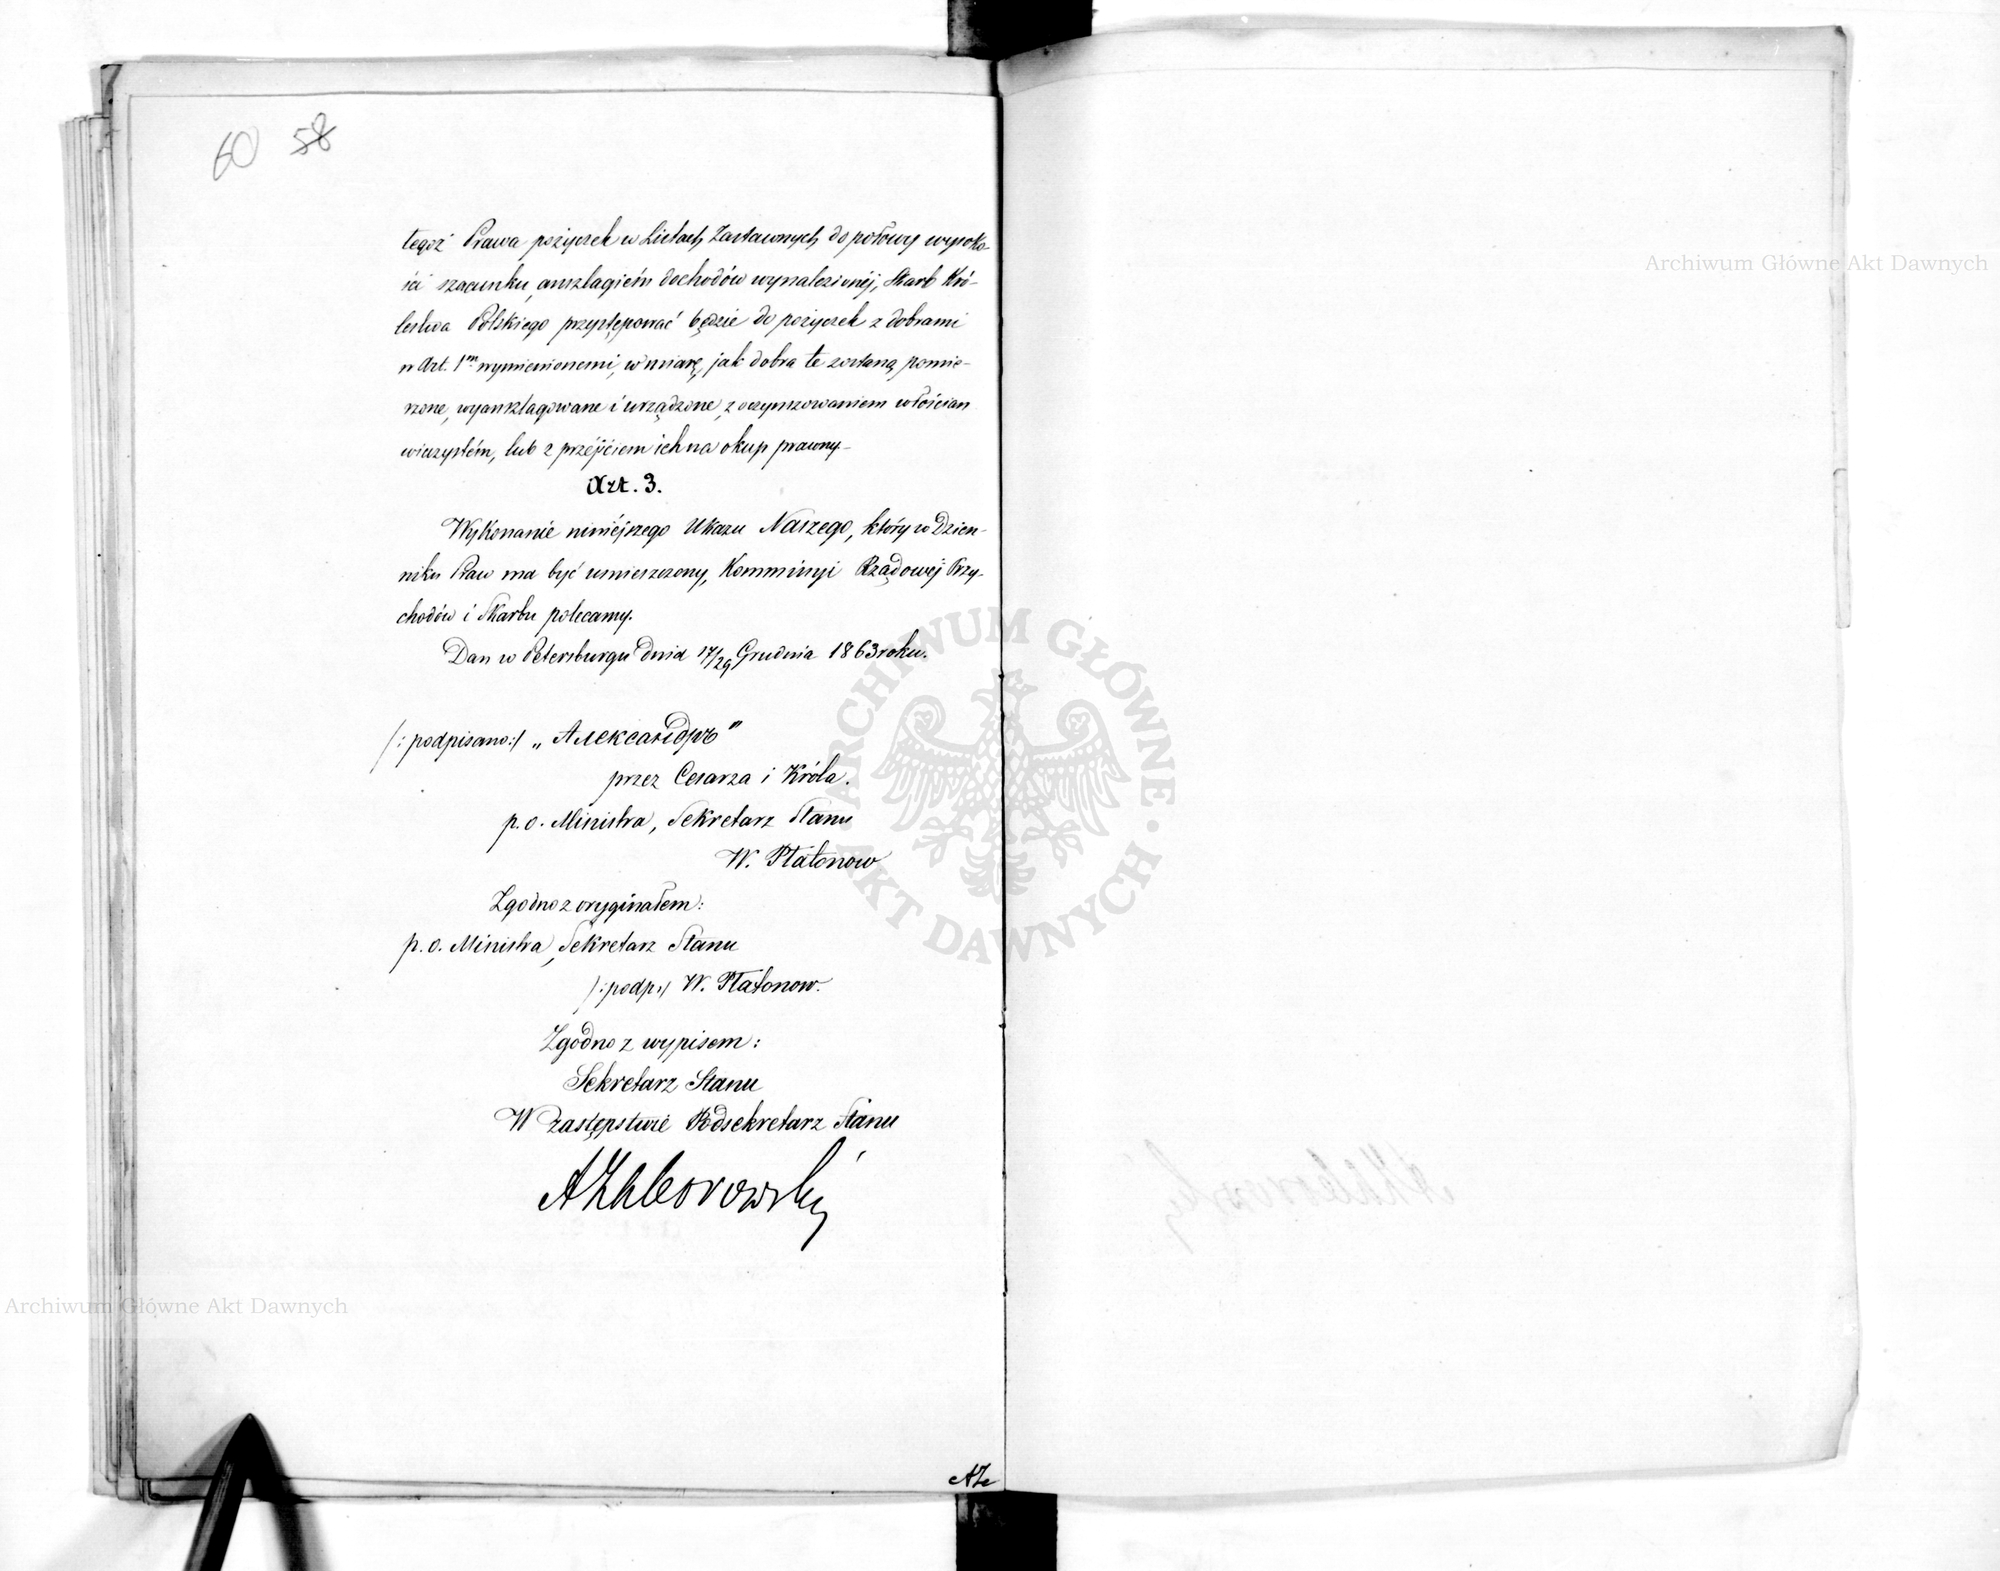 60 58
tegoż Prawa pożyczek w Listach Zastawnych do połowy wysoko-
ści szacunku, anszlagiem dochodów wynalezionéj, Skarb Kró-
lestwa Polskiego przystępować będzie do pożyczek z dobrami
w Art. 1m wymienionemi, w miarę, jak dobra te zostaną pomie-
rzone, wyanszlagowane i urządzone, z oczynszowaniem włościan
wieczystém, lub z przejściem ich na okup prawny.-
Art. 3.
Wykonanie niniéjszego Ukazu Naszego, który w Dzien-
niku Praw ma być umieszczony, Kommissyi Rządowéj Przy-
chodów i Skarbu polecamy.
Dan w Petersburgu dnia 17/29 Grudnia 1863 roku.
/:podpisano:/ „Александръ"
przez Cesarza i Króla.
p.o. Ministra, Sekretarz Stanu
W. Płatonow
Zgodno z oryginałem:
p.o. Ministra, Sekretarz Stanu
/:podp:/ W. Płatonow.
Zgodno z wypisem:
Sekretarz Stanu
W Zastępstwie Podsekretarz Stanu
AZaborowski
AZ
Archiwum Główne Akt Dawnych
Archiwum Główne Akt Dawnych
ARCHIWUM GŁÓWNE AKT DAWNYCH